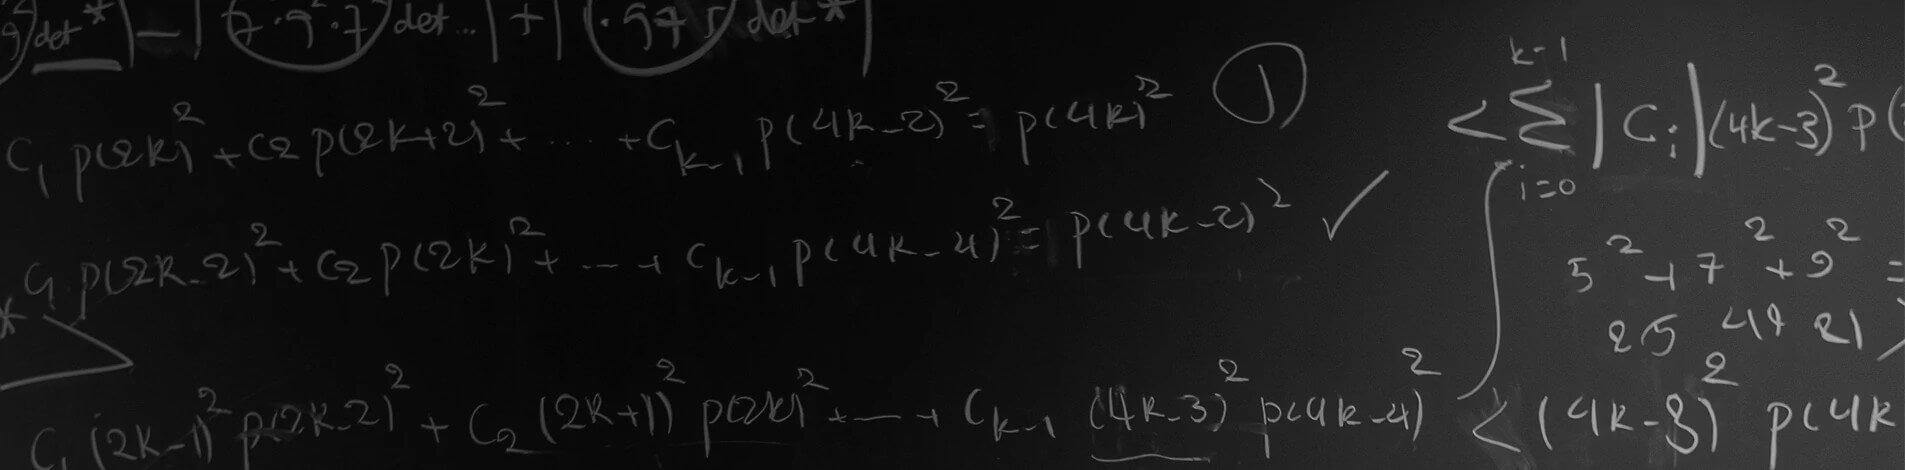 det* | - | 7·9²·7 det... | + | ·975 det* |
C₁ p(2k)² + C2 p(2k+2)² + ..... + C_{k-1} p(4k-2)² = p(4k)² ①
C₁ p(2k-2)² + C2 p(2k)² + ... + C_{k-1} p(4k-4)² = p(4k-2)² ✓
*
C₁ (2k-1)² p(2k-2)² + C₂ (2k+1)² p(2k)² + ... + C_{k-1} (4k-3)² p(4k-4)²
< ∑_{i=0}^{k-1} |C_i| (4k-3)² p(
5² + 7² + 9² =
25 49 81
< (4k-3)² p(4k